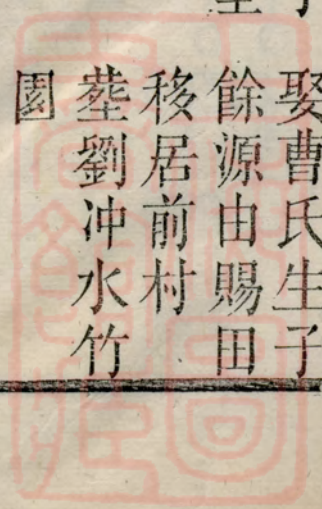 娶曹氏生子
餘源由賜田
移居前村
塟劉冲水竹
園